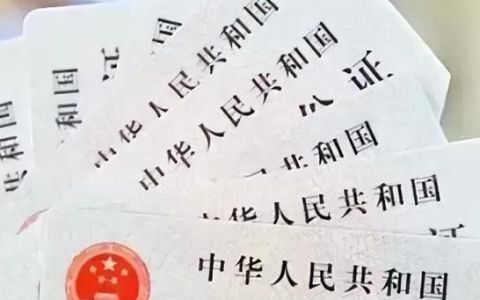 证
共和国
中华人民共和国
中华人民共和国
证
共和国
华人民共和国
中华人民共和国
证
中华人民共和国